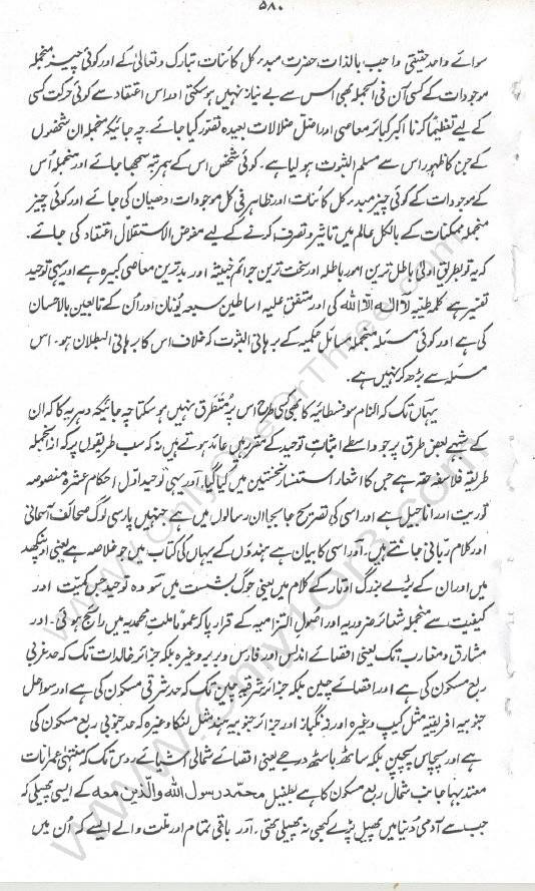 ۵۸۰
سوائے واحد حقیقی واجب بالذات حضرت مبدءِ کل کائنات تبارک و تعالیٰ کے اور کوئی چیز منجملہ
موجودات کے کسی آن فی الجملہ بھی اس سے بے نیاز نہیں ہو سکتی اور اس اعتقاد سے کوئی حرکت کسی
کے لیے تعظیماً کرنا اکبر کبائر معاصی اور اضل ضلالات بعیدہ تصور کیا جائے۔ چہ جائیکہ منجملہ ان شخصوں
کے جن کا ظہور اس سے مسلم الثبوت ہو لیا ہے۔ کوئی شخص اس کے ہم رتبہ سمجھا جائے اور منجملہ اُس
کے موجودات کے کوئی چیز مبدءِ کل کائنات، اور ظاہر فی کل موجودات، دھیان کی جائے اور کوئی چیز
منجملہ ممکنات کے بالکل عالم میں تاثیر و تصرف کرنے کے لیے مفرض الاستقلال اعتقاد کی جائے۔
کہ یہ تو بطریق اولیٰ باطل ترین امور باطلہ اور سخت ترین جرائم خبیثہ اور بدترین معاصی کبیرہ ہے اور یہی توحید
تفسیر ہے کلمہ طیبہ لا الہ الا اللہ کی اور متفق علیہ اساطین سبعہ یونان اور اُن کے تابعین بالاحسان
کی ہے اور کوئی مسئلہ منجملہ مسائل حکمیہ کے برہانی الثبوت کہ خلاف اس کا برہانی البطلان ہو۔ اس
مسئلہ سے بڑھ کر نہیں ہے۔
یہاں تک کہ الزام سوفسطائیہ کا بھی کسی طرح اس پر متطرق نہیں ہو سکتا چہ جائیکہ دہریہ کا کہ ان
کے شبہے بعض طرق پر جو واسطے اثبات توحید کے مقرر ہیں عائد ہوتے ہیں نہ کہ سب طریقوں پر کہ از انجملہ
طریقہ فلاسفہ حقہ ہے جس کا اشعار استفسار نخستین میں کیا گیا۔ اور یہی توحید اول احکام عشرہ منصوصہ
توریت اور اناجیل ہے اور اسی کی تصریح جابجا ان رسالوں میں ہے جنہیں پارسی لوگ صحائف آسمانی
اور کلام ربانی جانتے ہیں۔ اور اسی کا بیان ہے ہندوؤں کے یہاں کی کتاب میں جو خلاصہ ہے یعنی اوپنکھد
میں اور ان کے بڑے بزرگ اوتار کے کلام میں یعنی جوگ بشست میں سو وہ توحید جس کمیت اور
کیفیت سے منجملہ شعائر ضروریہ اور اصول التزامیہ کے قرار پا کر عموماً ملت محمدیہ میں رائج ہوئی۔ اور
مشارق و مغارب تک یعنی اقصائے اندلس اور فارس و بربر وغیرہ بلکہ جزائر خالدات تک کہ حد غربی
ربع مسکون کی ہے اور اقصائے چین بلکہ جزائر شرقیہ چین تک کہ حد شرقی مسکون کی ہے اور سواحل
جنوبیہ افریقیہ مثل کیپ وغیرہ اور زنگبار اور جزائر جنوبیہ ہند مثل لنکا وغیرہ کہ حد جنوبی ربع مسکون کی
ہے اور پچاس پچپن بلکہ ساٹھ باسٹھ درجے یعنی اقصائے شمالی ایشیائے روس تک کہ منتہیٰ عمرانات
معتد بہا جانب شمال ربع مسکون کا ہے بطفیل محمد رسول اللہ والذین معہ کے ایسی پھیلی کہ
جب سے آدمی دنیا میں پھیل پڑے کبھی نہ پھیلی تھی۔ اور باقی تمام اور ملت والے ایسے کہ اُن میں